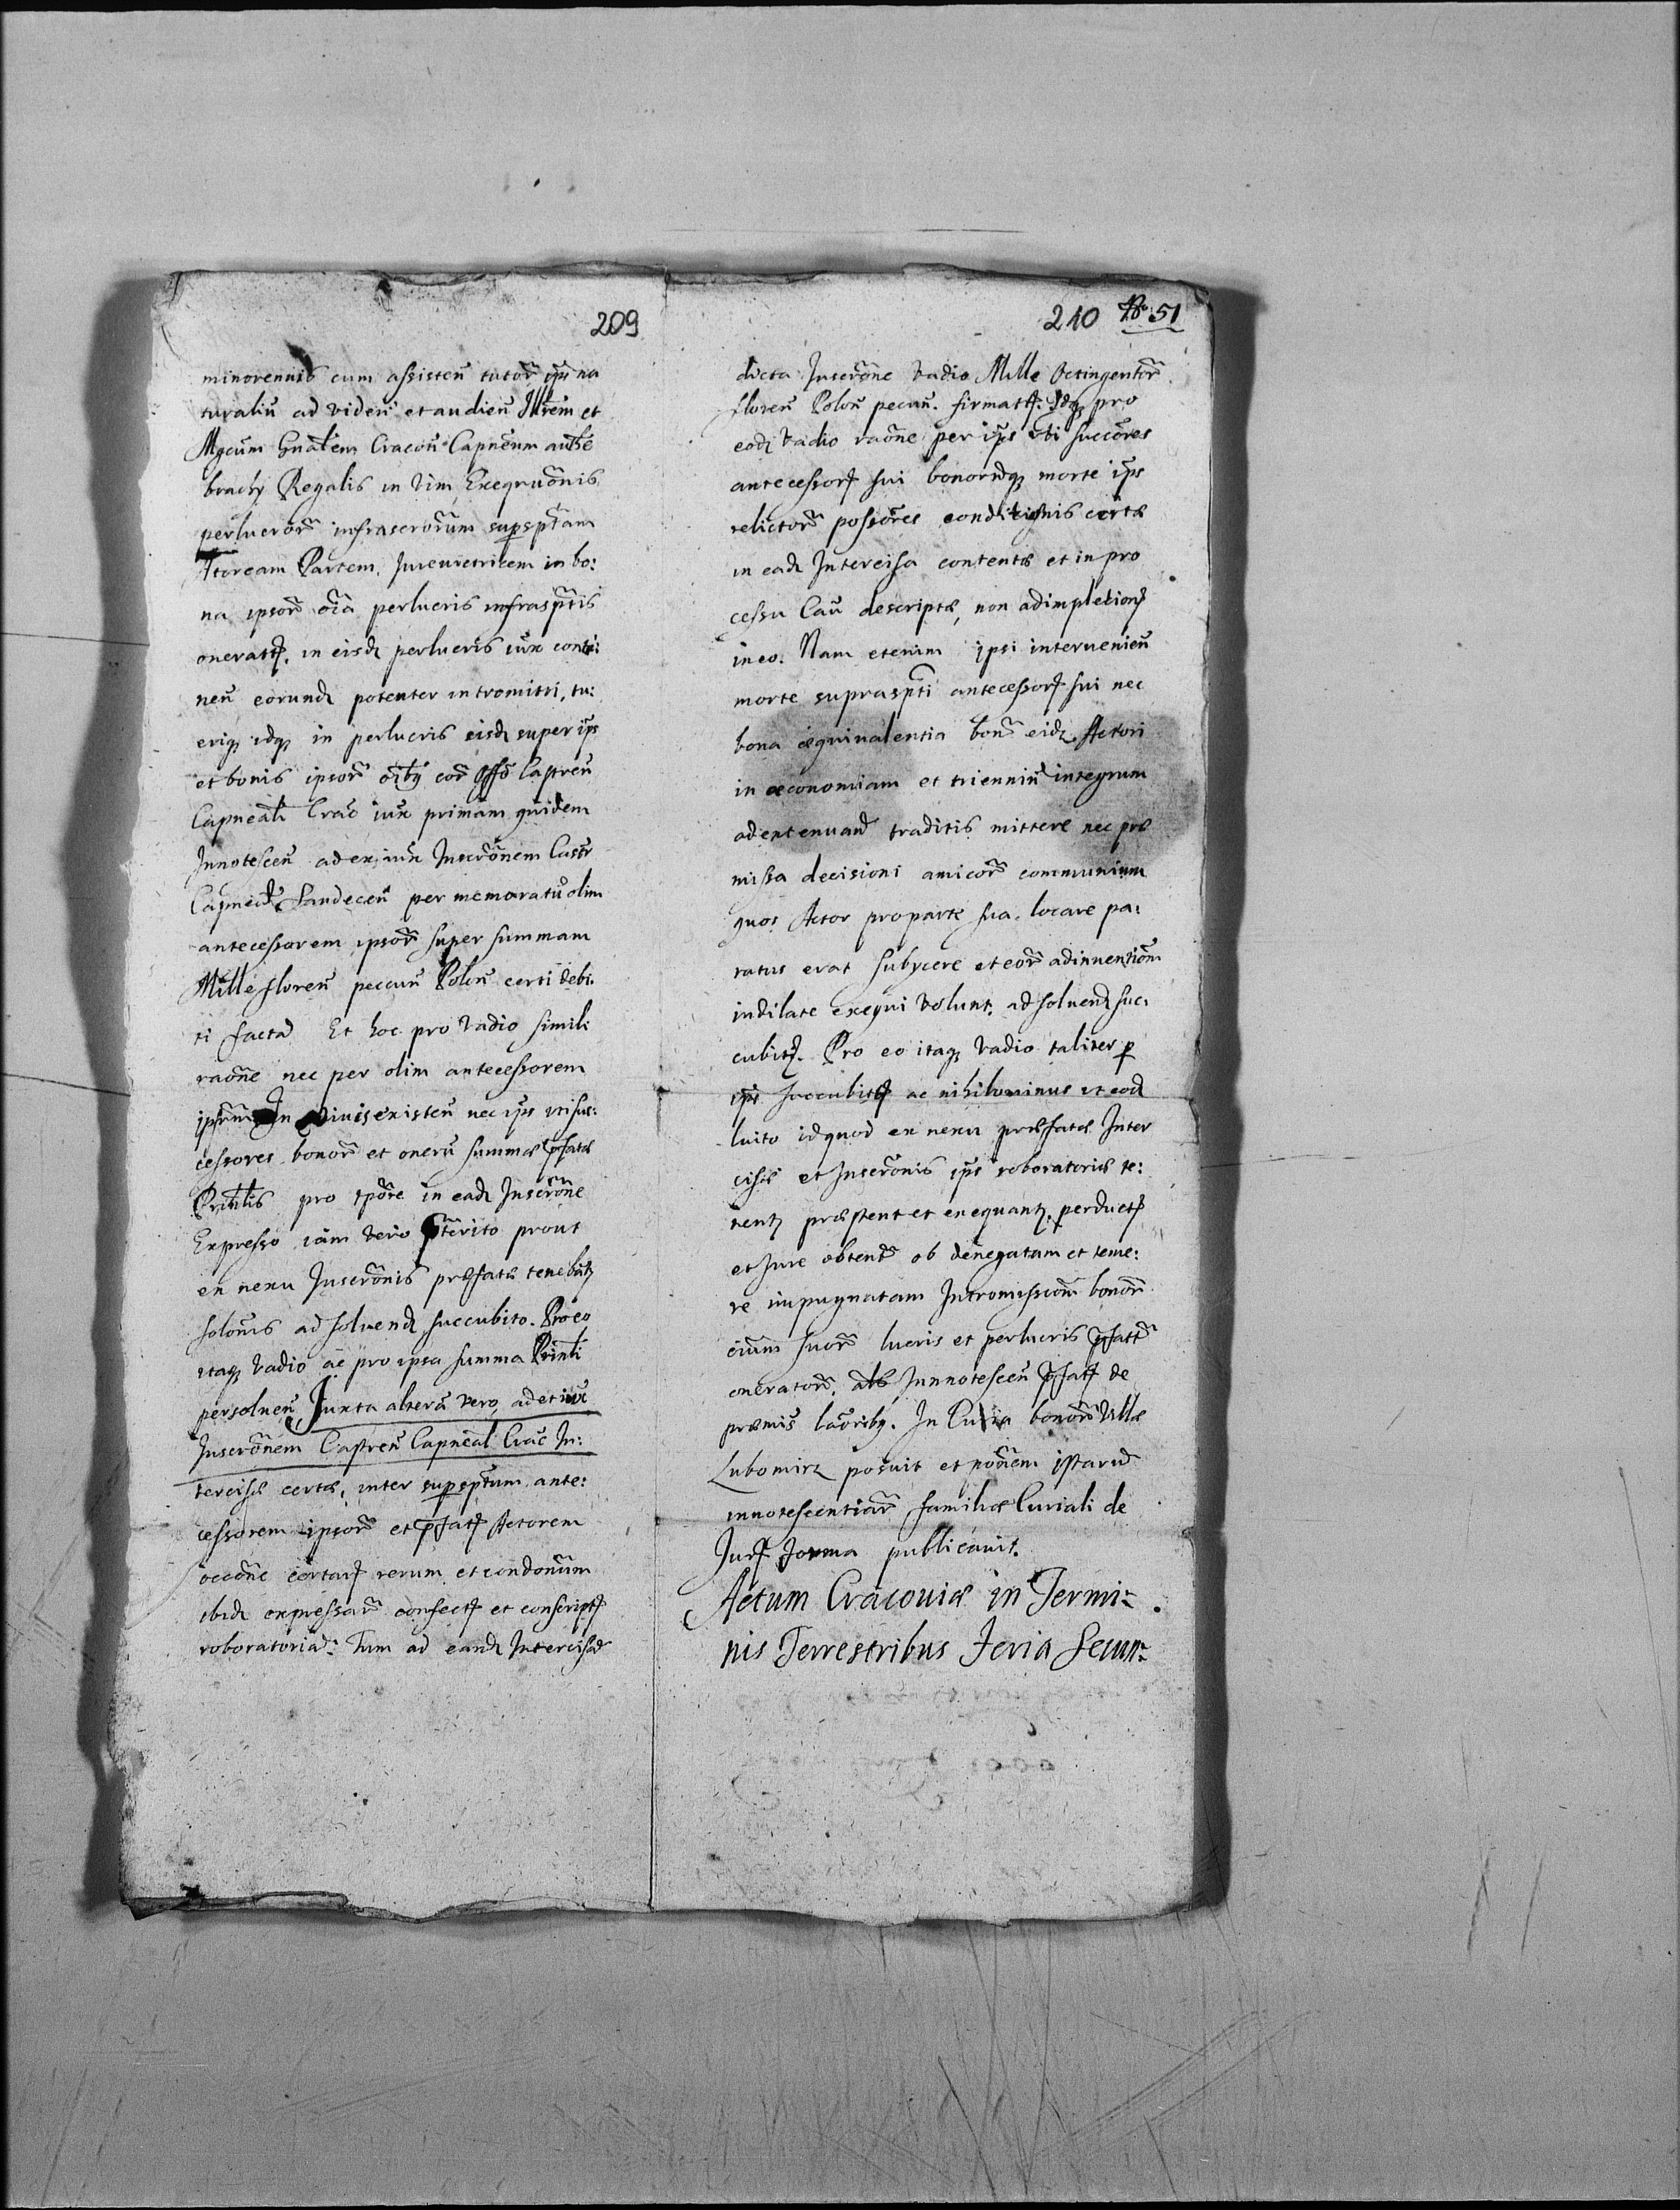 209
minorennis cum assisten̄ tutor̄ ip̄i na
turaliu̅ ad viden̄ et audien̄ Illr̄em et
Mgcum Gn̄alem Cracoū Capn̄eum auth̄e
brachÿ Regalis in vim Exequūonis
perlucror̄ infrascr̄orum supsptam
Partem in bo:
na ipsor̄ oīa perlucris infrasptis
onerat. in eisd perlucris iux conti:
nen̄ eorund potenter intromitti, tu:
eriq idq in perlucris eisd super ip̄s
et bonis ipsor̄ oīby cor̄ Offō Castren̄
Capneāli Crac̄ iux primam quidem
Innotescen̄ ad ex iuxa Inscr̄onem Castr
Capneāl Sandecen̄ per memoratū olim
antecessorem ipsor̄ super summam
Mille floren̄ peccun̄ Polon̄ certi debi.
ti facta Et hoc pro vadio simili
raōne nec per olim antecessorem
ipsum In vivis existen̄ nec ip̄s uti suc:
cessores bonor̄ et oneru̅ summæ p̄fatæ
Prin̄lis pro tp̄ore in ead Inscr̄one
Expresso iam vero p̄terito prout
ex nexu Inscr̄onis præfatæ tenebat
soloūis ad soluend succubito. Pro eo
itaq vadio ac pro ipsa summa Prin̄li
persoluen̄ Juxta altera̅ vero, ad et iux
Inscr̄onem Castren̄ Capneāl Crac̄ In:
tercisæ certæ, inter supsptum ante:
cessorem ipsor̄ et p̄fat Actorem
occōne certar rerum et condonum
ibid expressar̄ confect et conscript
roboratoria. Tum ad eand Intercisæ
210 51
dicta Inscr̄one vadio Mille Octingentor̄
floren̄ Polon̄ pecun̄. firmat. Idq pro
eod vadio raōne per ip̄s uti succōres
antecessor sui bonorūq morte ip̄s
relictor̄ possōres conditionis certæ
in ead Intercisa contentæ et in pro
cessu Cau̅ descriptæ, non adimpletion
in eo. Nam etenim ipsi intervenien̄
morte suprasp̄ti antecessor sui nec
bona æquivalentia bon̄ eid Actori
in œconomiam et trienniu̅ integrum
ad extenuand traditis mittere nec præ
missa decisioni amicor̄ communium
quos Actor pro parte sua locare pa:
ratus erat subÿcere et eor̄ adinuention̄
indilate exequi volunt. ad soluend suc:
cubit. Pro eo itaq vadio taliter p
ip̄s succubit ac nihilominus ut eod
luito id quod ex nexu præfatæ Inter
cisæ et Inscr̄onis ip̄s roboratoriæ te:
nent præstent et exequant, perduct
et Jure obtent ob denegatam et teme:
re impugnatam Intromissionē bonor̄
eium suor̄ lucris et perlucris p̄fat
onerator̄. Innotescen̄ p̄fat de
præmis laūoriby. In Curia bonor̄ Villæ
Lubomirz posuit et pōnem istarū
innotescentiar̄ familiæ Curiali de
Jur forma publicavit.
Actum Cracoviæ in Termi=
nis Terrestribus Feria Secun=